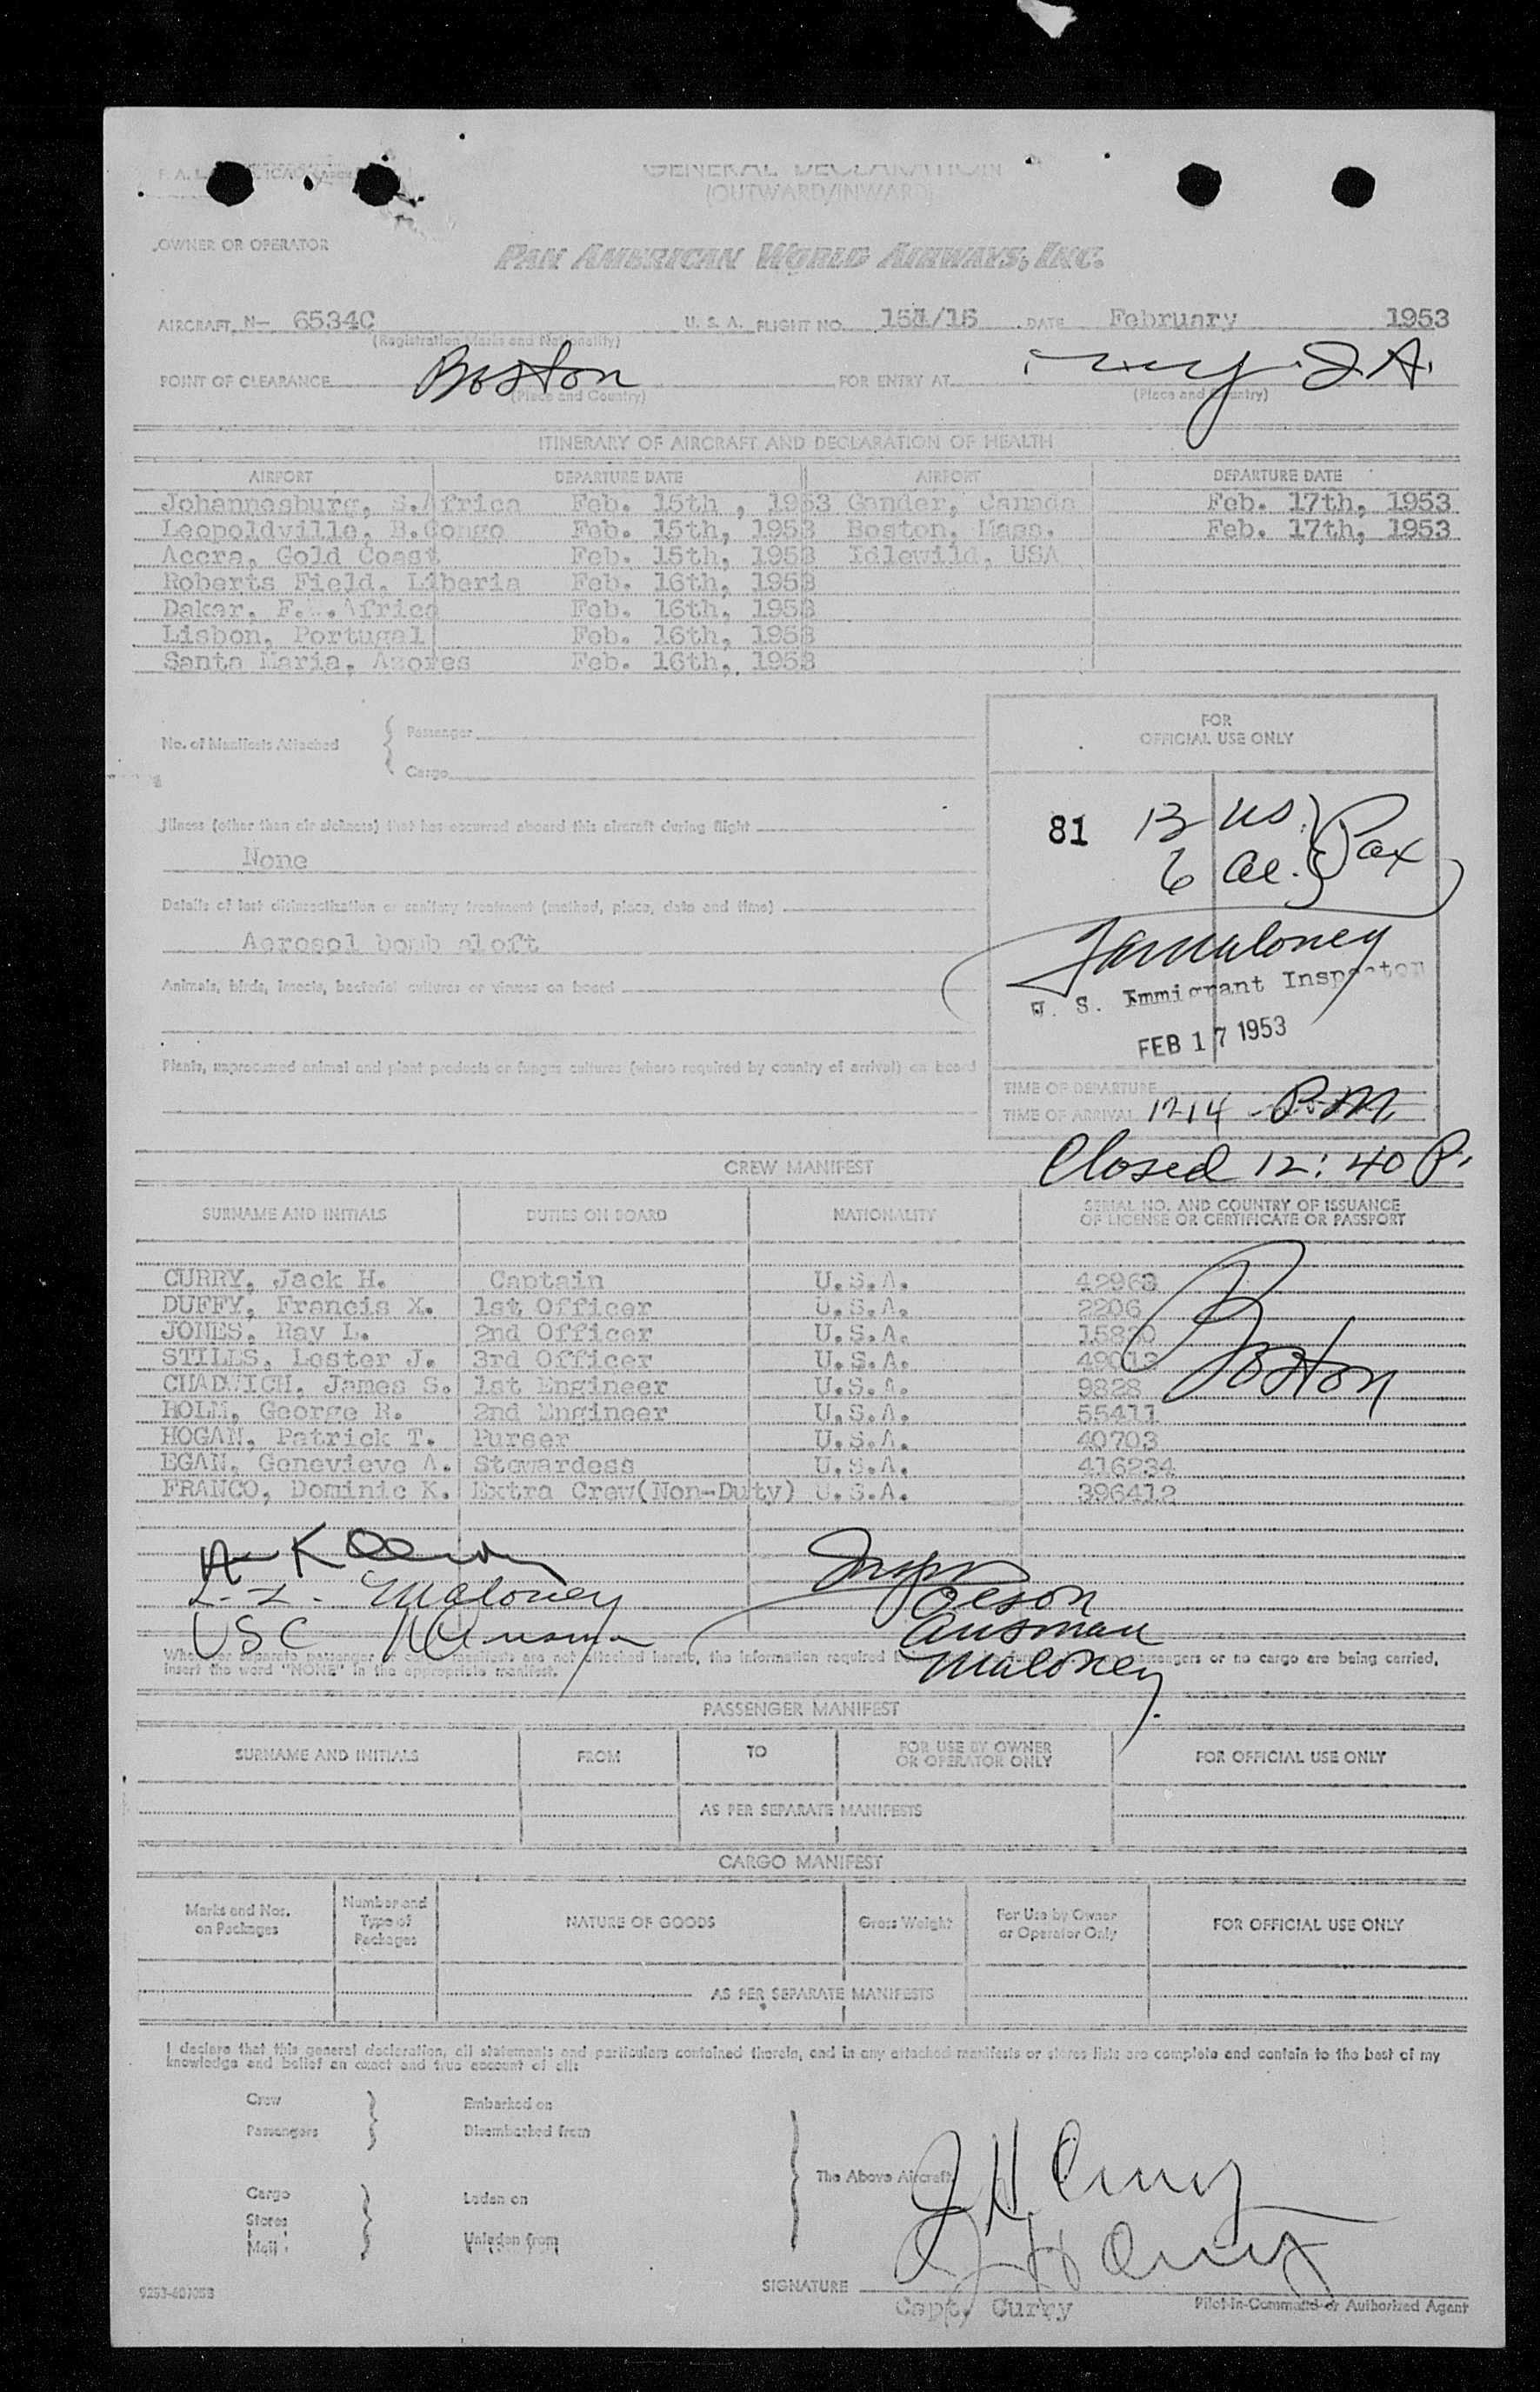 GENERAL DECLARATION
(OUTWARD/INWARD)
OWNER OR OPERATOR
PAN AMERICAN WORLD AIRWAYS, INC.
AIRCRAFT N- 6534C U. S. A. FLIGHT NO. 151/15 DATE February 1953
(Registration Marks and Nationality)
POINT OF CLEARANCE Boston FOR ENTRY AT
(Place and Country) (Place and Country)
ITINERARY OF AIRCRAFT AND DECLARATION OF HEALTH
AIRPORT DEPARTURE DATE AIRPORT DEPARTURE DATE
Johannesburg, S.Africa Feb. 15th , 1953 Gander, Canada Feb. 17th, 1953
Leopoldville, B.Congo Feb. 15th, 1953 Boston, Mass. Feb. 17th, 1953
Accra, Gold Coast Feb. 15th, 1953 Idlewild, USA
Roberts Field, Liberia Feb. 16th, 1953
Dakar, F.W.Africa Feb. 16th, 1953
Lisbon, Portugal Feb. 16th, 1953
Santa Maria, Azores Feb. 16th, 1953
FOR
OFFICIAL USE ONLY
No. of Manifests Attached { Passenger
Cargo
81 13 US } Pax
6 Al.
Illness (other than air sickness) that has occurred aboard this aircraft during flight
None
Details of last disinsectization or sanitary treatment (method, place, date and time)
Aerosol bomb aloft
Maloney
U. S. Immigrant Inspector
FEB 17 1953
Animals, birds, insects, bacterial cultures or viruses on board
Plants, unprocessed animal and plant products or fungus cultures (where required by country of arrival) on board
TIME OF DEPARTURE
TIME OF ARRIVAL 1214 P.M.
Closed 12:40 P.
CREW MANIFEST
SURNAME AND INITIALS DUTIES ON BOARD NATIONALITY SERIAL NO. AND COUNTRY OF ISSUANCE
OF LICENSE OR CERTIFICATE OR PASSPORT
CURRY, Jack H. Captain U.S.A. 42963
DUFFY, Francis X. 1st Officer U.S.A. 2206
JONES, Ray L. 2nd Officer U.S.A. 15820
STILLS, Lester J. 3rd Officer U.S.A. 49012
CHADWICH, James S. 1st Engineer U.S.A. 9828
HOLM, George R. 2nd Engineer U.S.A. 55411
HOGAN, Patrick T. Purser U.S.A. 40703
EGAN, Genevieve A. Stewardess U.S.A. 416234
FRANCO, Dominic K. Extra Crew(Non-Duty) U.S.A. 396412
Boston
Maloney
USC
Inspr
Oleson
Ausman
Maloney
Whenever separate passenger or cargo manifests are not attached hereto, the information required passengers or no cargo are being carried,
insert the word "NONE" in the appropriate manifest.
PASSENGER MANIFEST
SURNAME AND INITIALS FROM TO FOR USE BY OWNER
OR OPERATOR ONLY FOR OFFICIAL USE ONLY
AS PER SEPARATE MANIFESTS
CARGO MANIFEST
Marks and Nos.
on Packages Number and
Type of
Packages NATURE OF GOODS Gross Weight For Use by Owner
or Operator Only FOR OFFICIAL USE ONLY
AS PER SEPARATE MANIFESTS
I declare that this general declaration, all statements and particulars contained therein, and in any attached manifests or stores lists are complete and contain to the best of my
knowledge and belief an exact and true account of all:
Crew Embarked on
Passengers Disembarked from
The Above Aircraft
Cargo Laden on
Stores
Mail Unladen from
J H Curry
J H Curry
SIGNATURE
Capt. Curry Pilot-in-Command or Authorized Agent